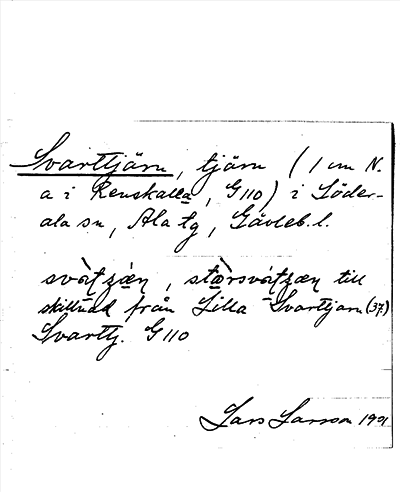 Svarttjärn, tjärn (1 cm N.
a i Renskalla, G 110) i Söder-
ala sn, Ala tg, Gävleb. l.
svàtʒæ̀n, stòrsvátʒæn till
skillnad från Lilla Svarttjärn (37.)
Svarttj. G 110
Lars Larsson 1901